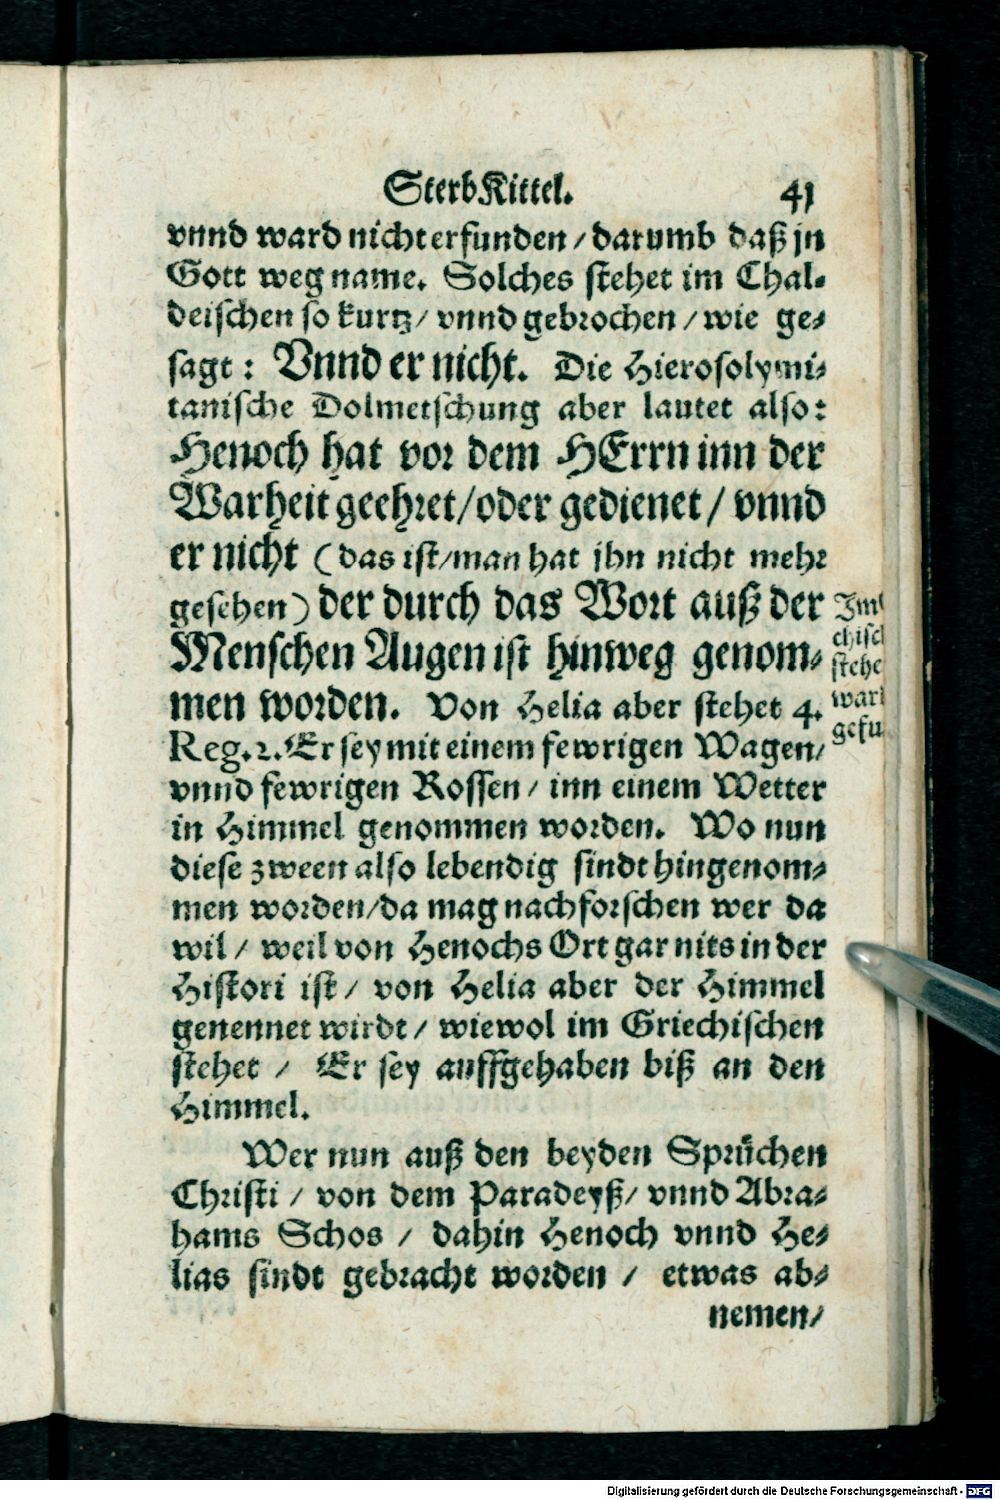 SterbKittel. 41
vnnd ward nicht erfunden / darumb daß jn
Gott weg name. Solches stehet im Chal-
deischen so kurtz / vnnd gebrochen / wie ge-
sagt: Vnnd er nicht. Die Hierosolymi-
tanische Dolmetschung aber lautet also:
Henoch hat vor dem HErrn inn der
Warheit geehret / oder gedienet / vnnd
er nicht (das ist / man hat jhn nicht mehr
gesehen) der durch das Wort auß der
Menschen Augen ist hinweg genom-
men worden. Von Helia aber stehet 4.
Reg. 2. Er sey mit einem fewrigen Wagen /
vnnd fewrigen Rossen / inn einem Wetter
in Himmel genommen worden. Wo nun
diese zween also lebendig sindt hingenom-
men worden / da mag nachforschen wer da
wil / weil von Henochs Ort gar nits in der
Histori ist / von Helia aber der Himmel
genennet wirdt / wiewol im Griechischen
stehet / Er sey auffgehaben biß an den
Himmel.
Wer nun auß den beyden Sprüchen
Christi / von dem Paradeyß / vnnd Abra-
hams Schos / dahin Henoch vnnd He-
lias sindt gebracht worden / etwas ab-
nemen /
Im
chisch
stehe
ward
gefu
Digitalisierung gefördert durch die Deutsche Forschungsgemeinschaft - DFG